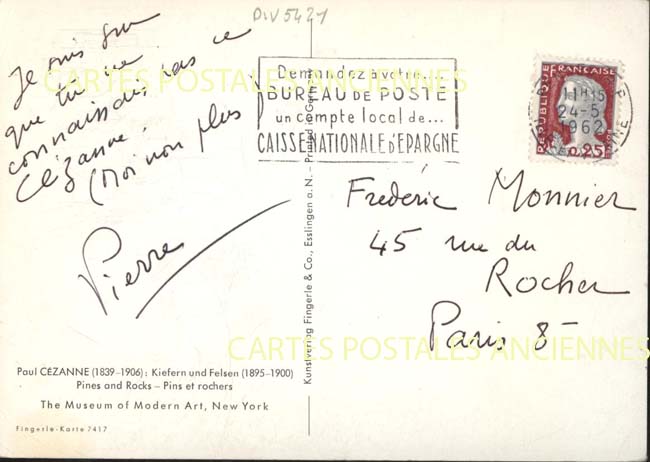 DIV5421
Je suis sûr
que tu ne
connaissais pas ce
Cézanne.
(Moi non plus)
Pierre
CARTES POSTALES ANCIENNES
Demandez à votre...
BUREAU DE POSTE
un compte local de...
CAISSE NATIONALE d'EPARGNE
REPUBLIQUE FRANÇAISE
0,25F
11H15
24-5
1962
Frédéric Monnier
45 rue du
Rocher
Paris 8-
CARTES POSTALES ANCIENNES
Kunstverlag Fingerle & Co., Esslingen a. N. – Printed in Germany
Paul CÉZANNE (1839–1906): Kiefern und Felsen (1895–1900)
Pines and Rocks – Pins et rochers
The Museum of Modern Art, New York
Fingerle-Karte 7417